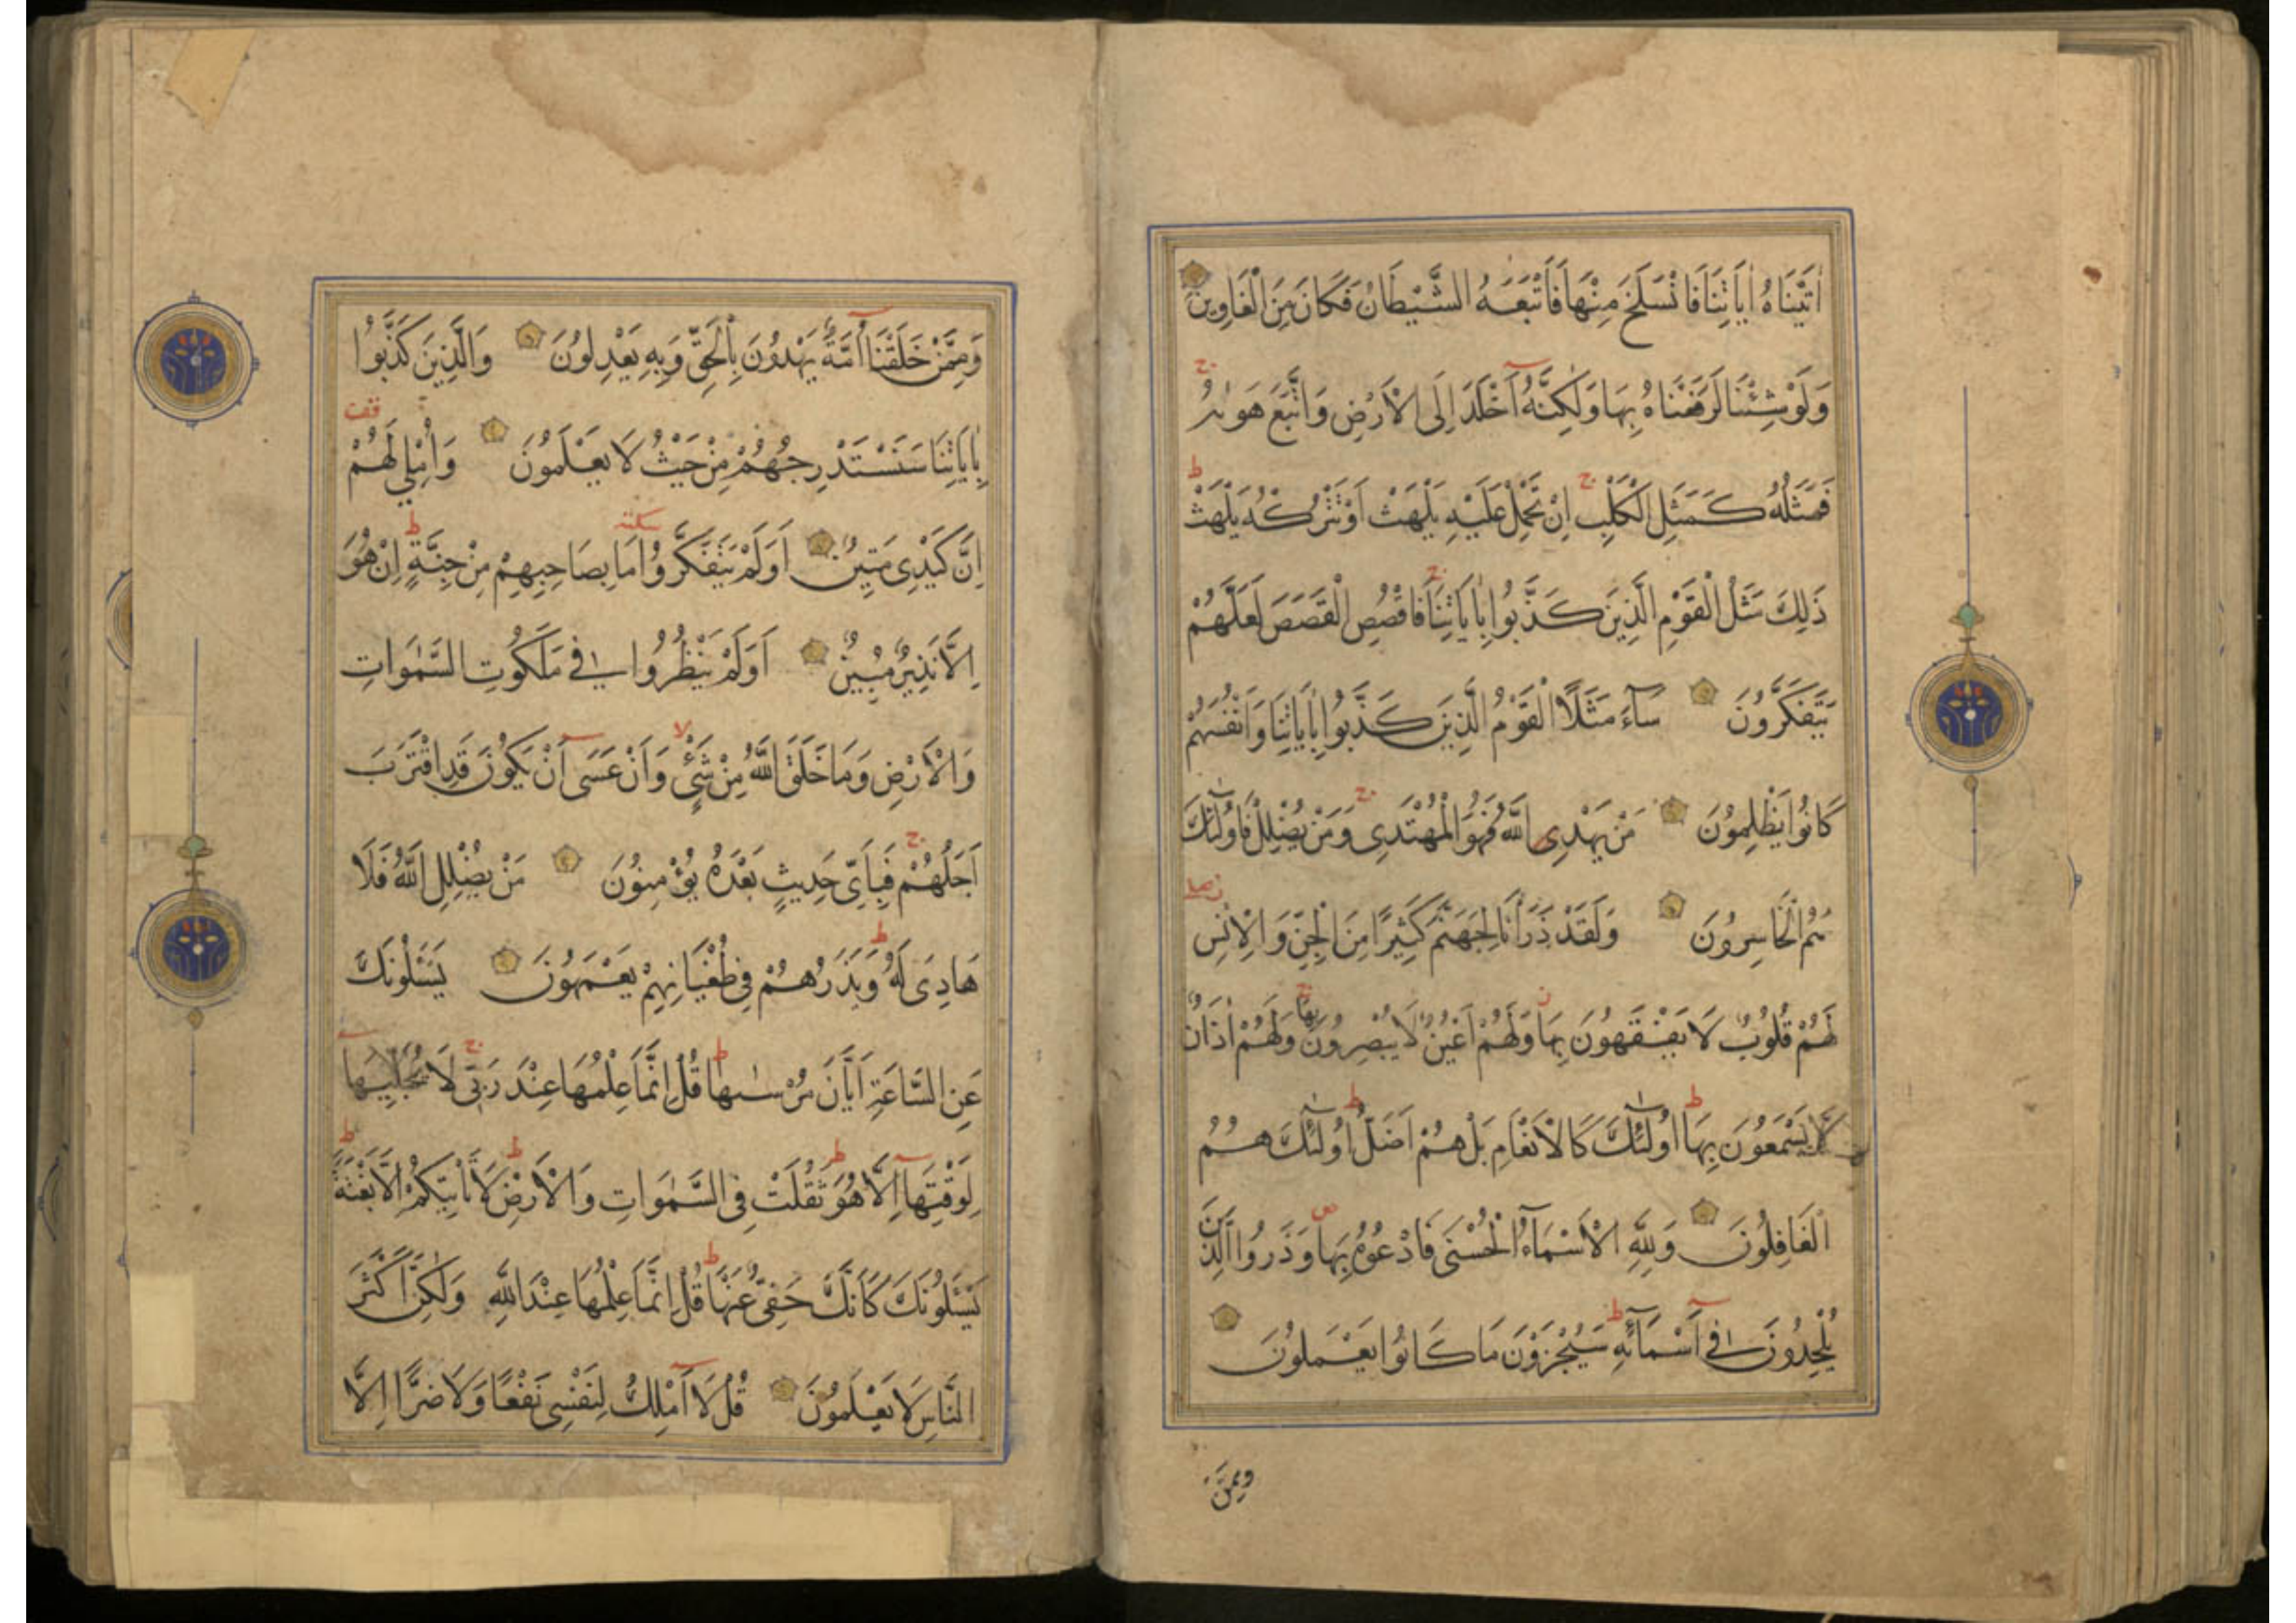 اٰتَيْنَاهُ اٰيَاتِنَا فَانْسَلَخَ مِنْهَا فَاَتْبَعَهُ الشَّيْطَانُ فَكَانَ مِنَ الْغَاوِينَ
وَلَوْ شِئْنَا لَرَفَعْنَاهُ بِهَا وَلٰكِنَّهُ اَخْلَدَ اِلَى الْاَرْضِ وَاتَّبَعَ هَوٰيهُ ج
فَمَثَلُهُ كَمَثَلِ الْكَلْبِ ج اِنْ تَحْمِلْ عَلَيْهِ يَلْهَثْ اَوْ تَتْرُكْهُ يَلْهَثْ ط
ذٰلِكَ مَثَلُ الْقَوْمِ الَّذِينَ كَذَّبُوا بِاٰيَاتِنَا ج فَاقْصُصِ الْقَصَصَ لَعَلَّهُمْ
يَتَفَكَّرُونَ سَآءَ مَثَلًا الْقَوْمُ الَّذِينَ كَذَّبُوا بِاٰيَاتِنَا وَاَنْفُسَهُمْ
كَانُوا يَظْلِمُونَ مَنْ يَهْدِى اللّٰهُ فَهُوَ الْمُهْتَدِى ج وَمَنْ يُضْلِلْ فَاُولٰٓئِكَ
هُمُ الْخَاسِرُونَ وَلَقَدْ ذَرَاْنَا لِجَهَنَّمَ كَثِيرًا مِنَ الْجِنِّ وَالْاِنْسِ
لَهُمْ قُلُوبٌ لَا يَفْقَهُونَ بِهَا وَلَهُمْ اَعْيُنٌ لَا يُبْصِرُونَ بِهَا وَلَهُمْ اٰذَانٌ
لَا يَسْمَعُونَ بِهَا ط اُولٰٓئِكَ كَالْاَنْعَامِ بَلْ هُمْ اَضَلُّ ط اُولٰٓئِكَ هُمُ
الْغَافِلُونَ وَلِلّٰهِ الْاَسْمَآءُ الْحُسْنٰى فَادْعُوهُ بِهَا ص وَذَرُوا الَّذِينَ
يُلْحِدُونَ فِى اَسْمَآئِهِ ط سَيُجْزَوْنَ مَا كَانُوا يَعْمَلُونَ
وَمِمَّنْ
وَمِمَّنْ خَلَقْنَا اُمَّةٌ يَهْدُونَ بِالْحَقِّ وَبِهِ يَعْدِلُونَ وَالَّذِينَ كَذَّبُوا
بِاٰيَاتِنَا سَنَسْتَدْرِجُهُمْ مِنْ حَيْثُ لَا يَعْلَمُونَ وَاُمْلِى لَهُمْ قف
اِنَّ كَيْدِى مَتِينٌ اَوَلَمْ يَتَفَكَّرُوا سكته مَا بِصَاحِبِهِمْ مِنْ جِنَّةٍ ط اِنْ هُوَ
اِلَّا نَذِيرٌ مُبِينٌ اَوَلَمْ يَنْظُرُوا فِى مَلَكُوتِ السَّمٰوَاتِ
وَالْاَرْضِ وَمَا خَلَقَ اللّٰهُ مِنْ شَىْءٍ لا وَاَنْ عَسٰى اَنْ يَكُونَ قَدِ اقْتَرَبَ
اَجَلُهُمْ ج فَبِاَىِّ حَدِيثٍ بَعْدَهُ يُؤْمِنُونَ مَنْ يُضْلِلِ اللّٰهُ فَلَا
هَادِىَ لَهُ ط وَيَذَرُهُمْ فِى طُغْيَانِهِمْ يَعْمَهُونَ يَسْئَلُونَكَ
عَنِ السَّاعَةِ اَيَّانَ مُرْسٰيهَا ط قُلْ اِنَّمَا عِلْمُهَا عِنْدَ رَبِّى ج لَا يُجَلِّيهَا
لِوَقْتِهَا اِلَّا هُوَ ط ثَقُلَتْ فِى السَّمٰوَاتِ وَالْاَرْضِ ط لَا تَاْتِيكُمْ اِلَّا بَغْتَةً ط
يَسْئَلُونَكَ كَاَنَّكَ حَفِىٌّ عَنْهَا ط قُلْ اِنَّمَا عِلْمُهَا عِنْدَ اللّٰهِ وَلٰكِنَّ اَكْثَرَ
النَّاسِ لَا يَعْلَمُونَ قُلْ لَا اَمْلِكُ لِنَفْسِى نَفْعًا وَلَا ضَرًّا اِلَّا